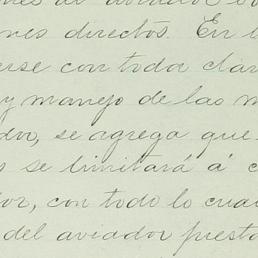 de aviador
nes directos. En
erse con toda clar
y manejo de las m
dor, se agrega que
s se limitará á c
or, con todo lo cual
del aviador presta